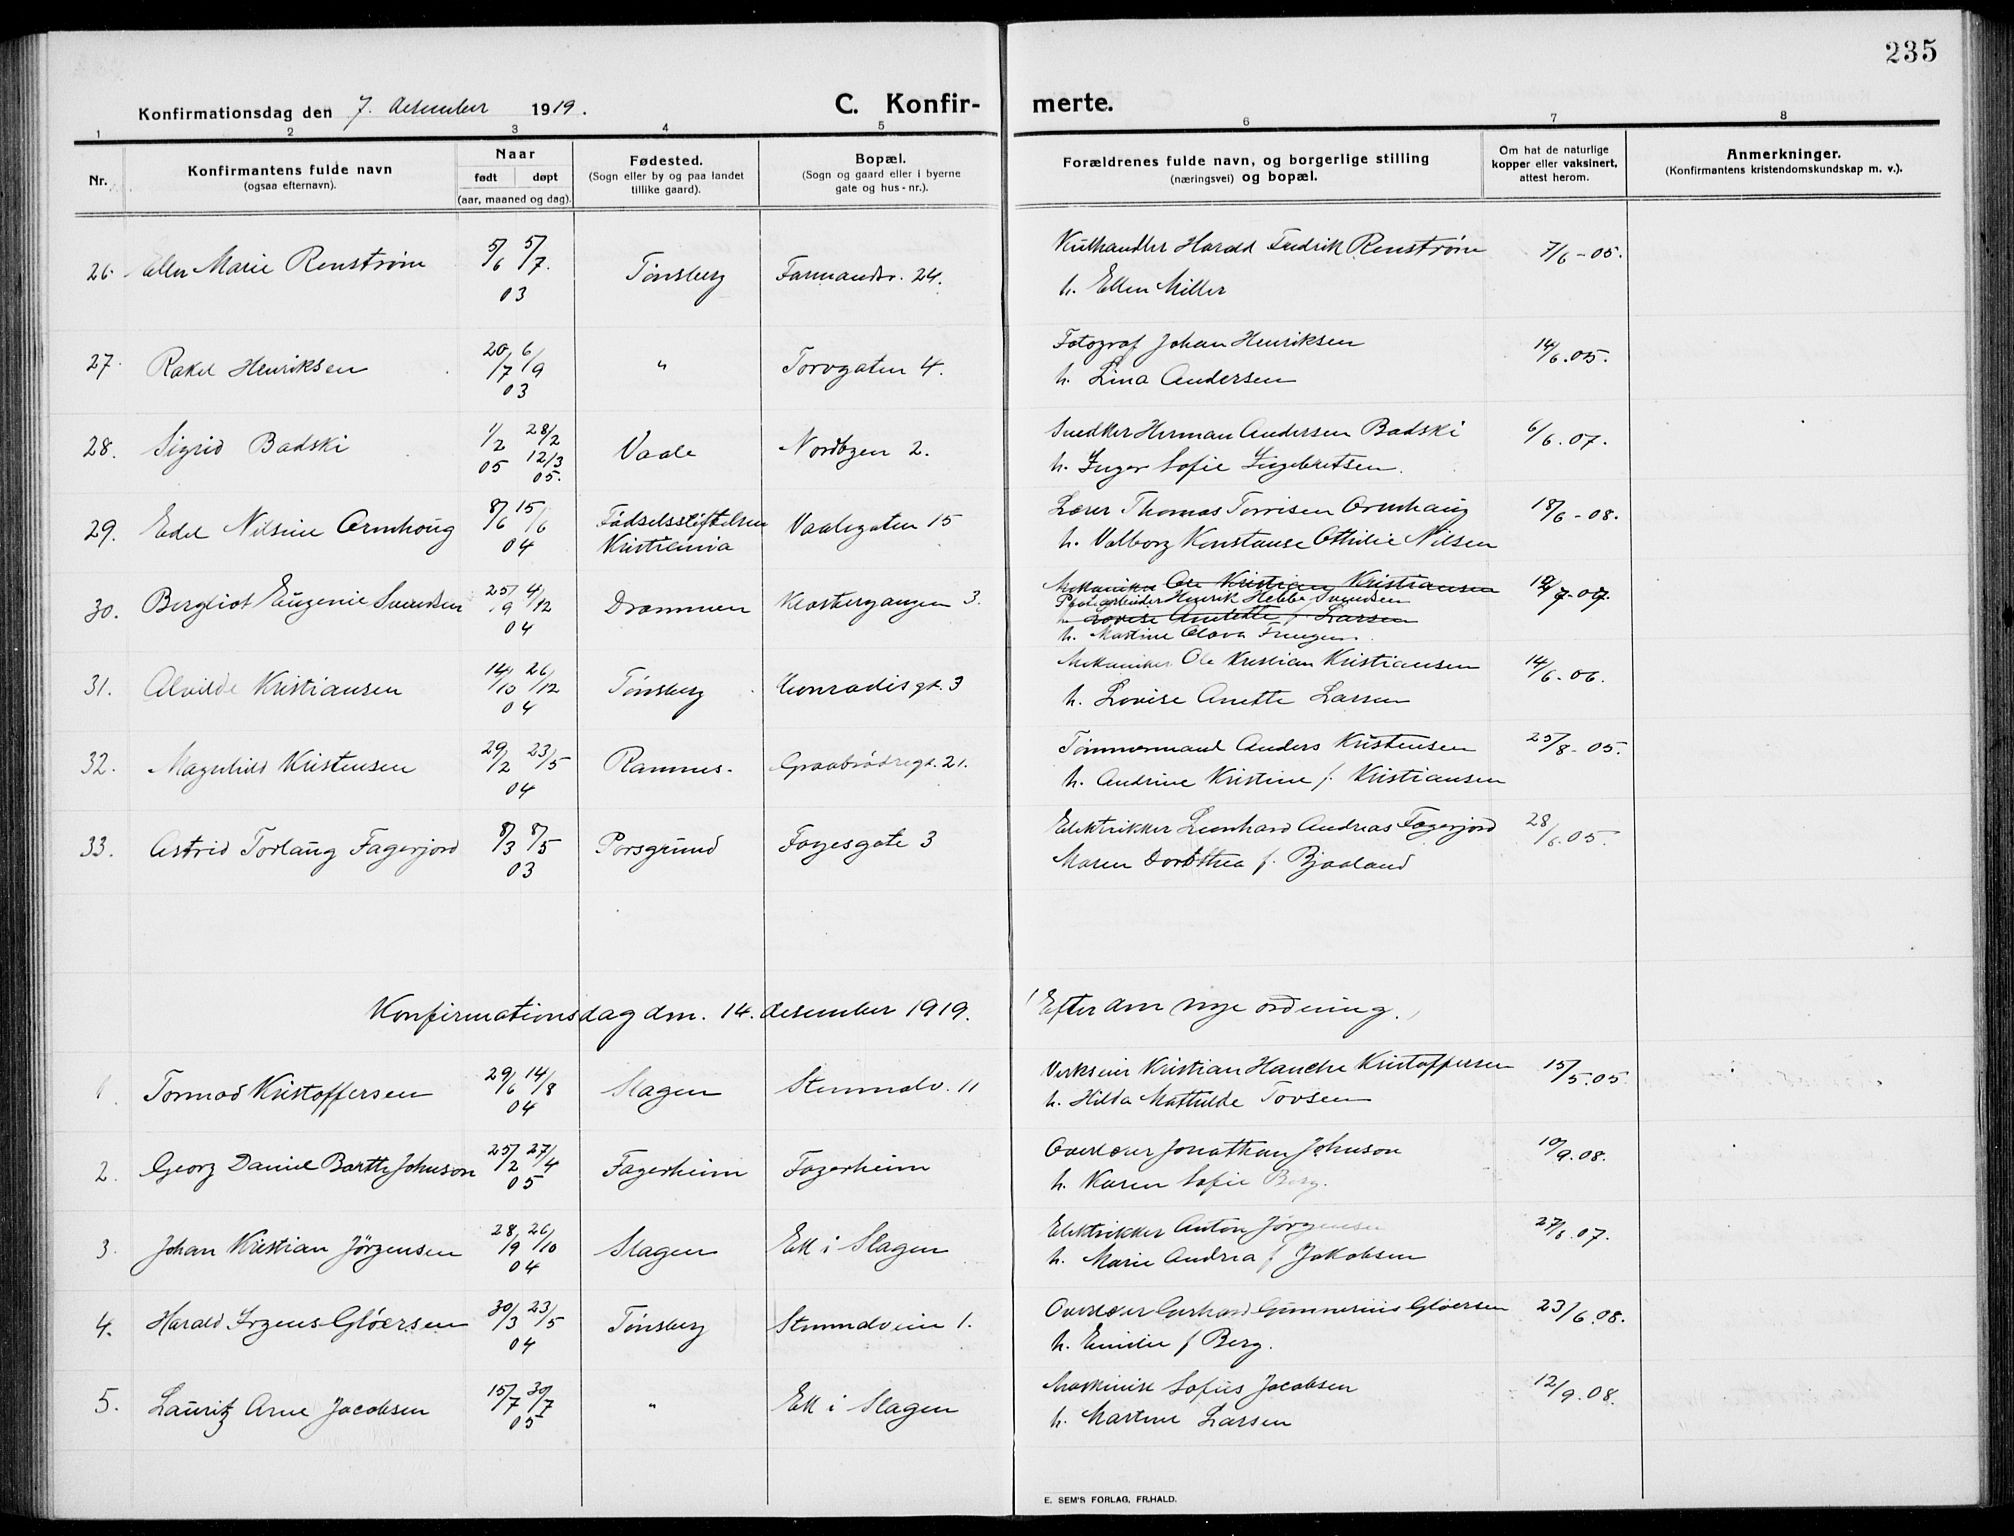 235
Konfirmationsdag den 7. desember 1919.
C. Konfir-
merte.
1 2 3 4 5 6 7 8
Nr.
Konfirmantens fulde navn
(ogsaa efternavn).
Naar
født døpt
(aar, maaned og dag).
Fødested.
(Sogn eller by og paa landet
tillike gaard).
Bopæl.
(Sogn og gaard eller i byerne
gate og hus-nr.).
Forældrenes fulde navn, og borgerlige stilling
(næringsvei) og bopæl.
Om hat de naturlige
kopper eller vaksinert,
attest herom.
Anmerkninger.
(Konfirmantens kristendomskundskap m. v.).
26. Ellen Marie Renstrøm 5/6 5/7 03 Tønsberg Farmandsv. 24. Kulhandler Harald Fredrik Renstrøm 7/6-05.
h. Ellen Miller
27. Rakel Henriksen 20/7 6/9 03 " Torvgaten 4. Fotograf Johan Henriksen 14/6.05.
h. Lina Andersen
28. Sigrid Badski 1/2 05 28/2 12/3 05. Vaale Nordbyen 2. Snedker Herman Andersen Badski 6/6.07.
h. Inger Sofie Ingebretsen.
29. Edel Nilsine Ormhoug 8/6 15/6 04 Fødselsstiftelsen Kristiania Vaalegaten 15 Lærer Thomas Torrisen Ormhaug 18/6-08.
h. Valborg Konstanse Othilie Nilsen
30. Bergliot Eugenie Svendsen 25/9 4/12 04 Drammen Klostergangen 3. Mekaniker Ole Kristian Kristiansen
Henrik Hebbe Svendsen
h. Lovise Anette f. Larsen
h. Martine Olava
31. Alvilde Kristiansen 14/10 26/12 04 Tønsberg Conradis gt. 3 Mekaniker Ole Kristian Kristiansen 14/6-06.
h. Lovise Anette Larsen
32. Magnhild Kristensen 29/2 23/5 04 Ramnes. Graabrødregt. 21. Tømmermand Anders Kristensen 25/8-05.
h. Andrine Kristine f. Kristiansen
33. Astrid Torlaug Fagerjord 8/3 8/5 03 Porsgrund Foyesgate 3 Elektrikker Leonhard Andreas Fagerjord 28/6.05.
Maren Dorothea f. Bjaaland
Konfirmationsdag den. 14. desember 1919. (Efter den nye ordning.)
1. Tormod Kristoffersen 29/6 14/8 04 Slagen Stenmalv. 11 Verkseier Kristian Hanche Kristoffersen 15/5.05.
h. Hilda Mathilde Tovsen
2. Georg Daniel Barth Johnson 25/2 27/4 05 Fagerheim Fagerheim Overlærer Jonathan Johnson 10/9.08.
h. Karen Sofie Berg.
3. Johan Kristian Jörgensen 28/9 26/10 04 Slagen Ek i Slagen Elektrikker Anton Jørgensen 27/6.07.
h. Marie Andrea f Jakobsen
4. Harald Irgens Glöersen 30/3 23/5 04 Tønsberg Stenmalveien 1. Overlærer Gerhard Gunnerius Gløersen 23/6.08.
h. Emilie f Berg.
5. Lauritz Arne Jacobsen 15/7 30/7 05 " Ek i Slagen Maskinist Sofus Jacobsen 12/9.08.
h. Martine Larsen
E. SEM'S FORLAG, FR.HALD.